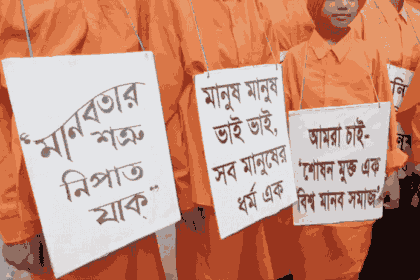 "মানবতার
শত্রু
নিপাত
যাক"
মানুষ মানুষ
ভাই ভাই,
সব মানুষের
ধর্ম এক
আমরা চাই-
"শোষন মুক্ত এক
বিশ্ব মানব সমাজ"